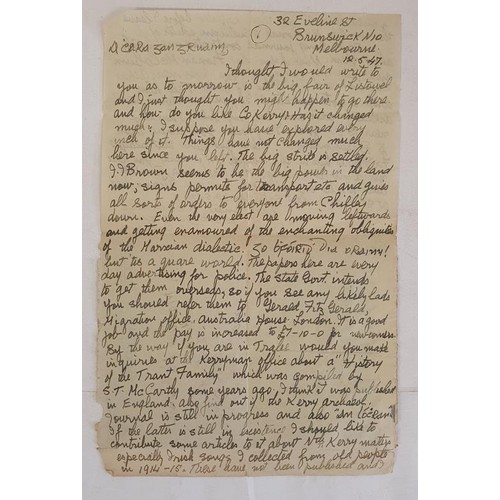 32 Eveline St
Brunswick N10
Melbourne
12.5.47.
①
A Cara
I thought I would write to
you as to morrow is the big fair of Listowel
and I just thought you might happen to go there.
and how do you like Co Kerry? Has it changed
much? I suppose you have explored every
inch of it. Things have not changed much
here since you left. The big strike is settled.
J.J Brown seems to be the big power in the land
now, signs permits for transport etc and gives
all sorts of orders to everyone from Chifley
down. Even the very elect are moving leftwards
and getting enamoured of the enchanting obliquities
of the Marxian dialectic! Go bfóiridh Dia orainn!
but tis a quare world. The papers here are every
day advertising for police. The State Govt intends
to get them overseas, so if you see any likely lads
you should refer them to Gerald Fitz Gerald,
Migration office, Australia House. London. It is a good
job and the pay is increased to £7-10-0 for newcomers
By the way if you are in Tralee would you make
inquiries at the Kerryman office about a "History
of the Trant Family" which was compiled by
S.T. McCarthy some years ago, I think it was published
in England. also find out if the Kerry archaeol.
Journal is still in progress and also An Lóchrann
If the latter is still in existence I should like to
contribute some articles to it about Nth Kerry matters
especially Irish songs I collected from old people
in 1914-15. These have not been published and